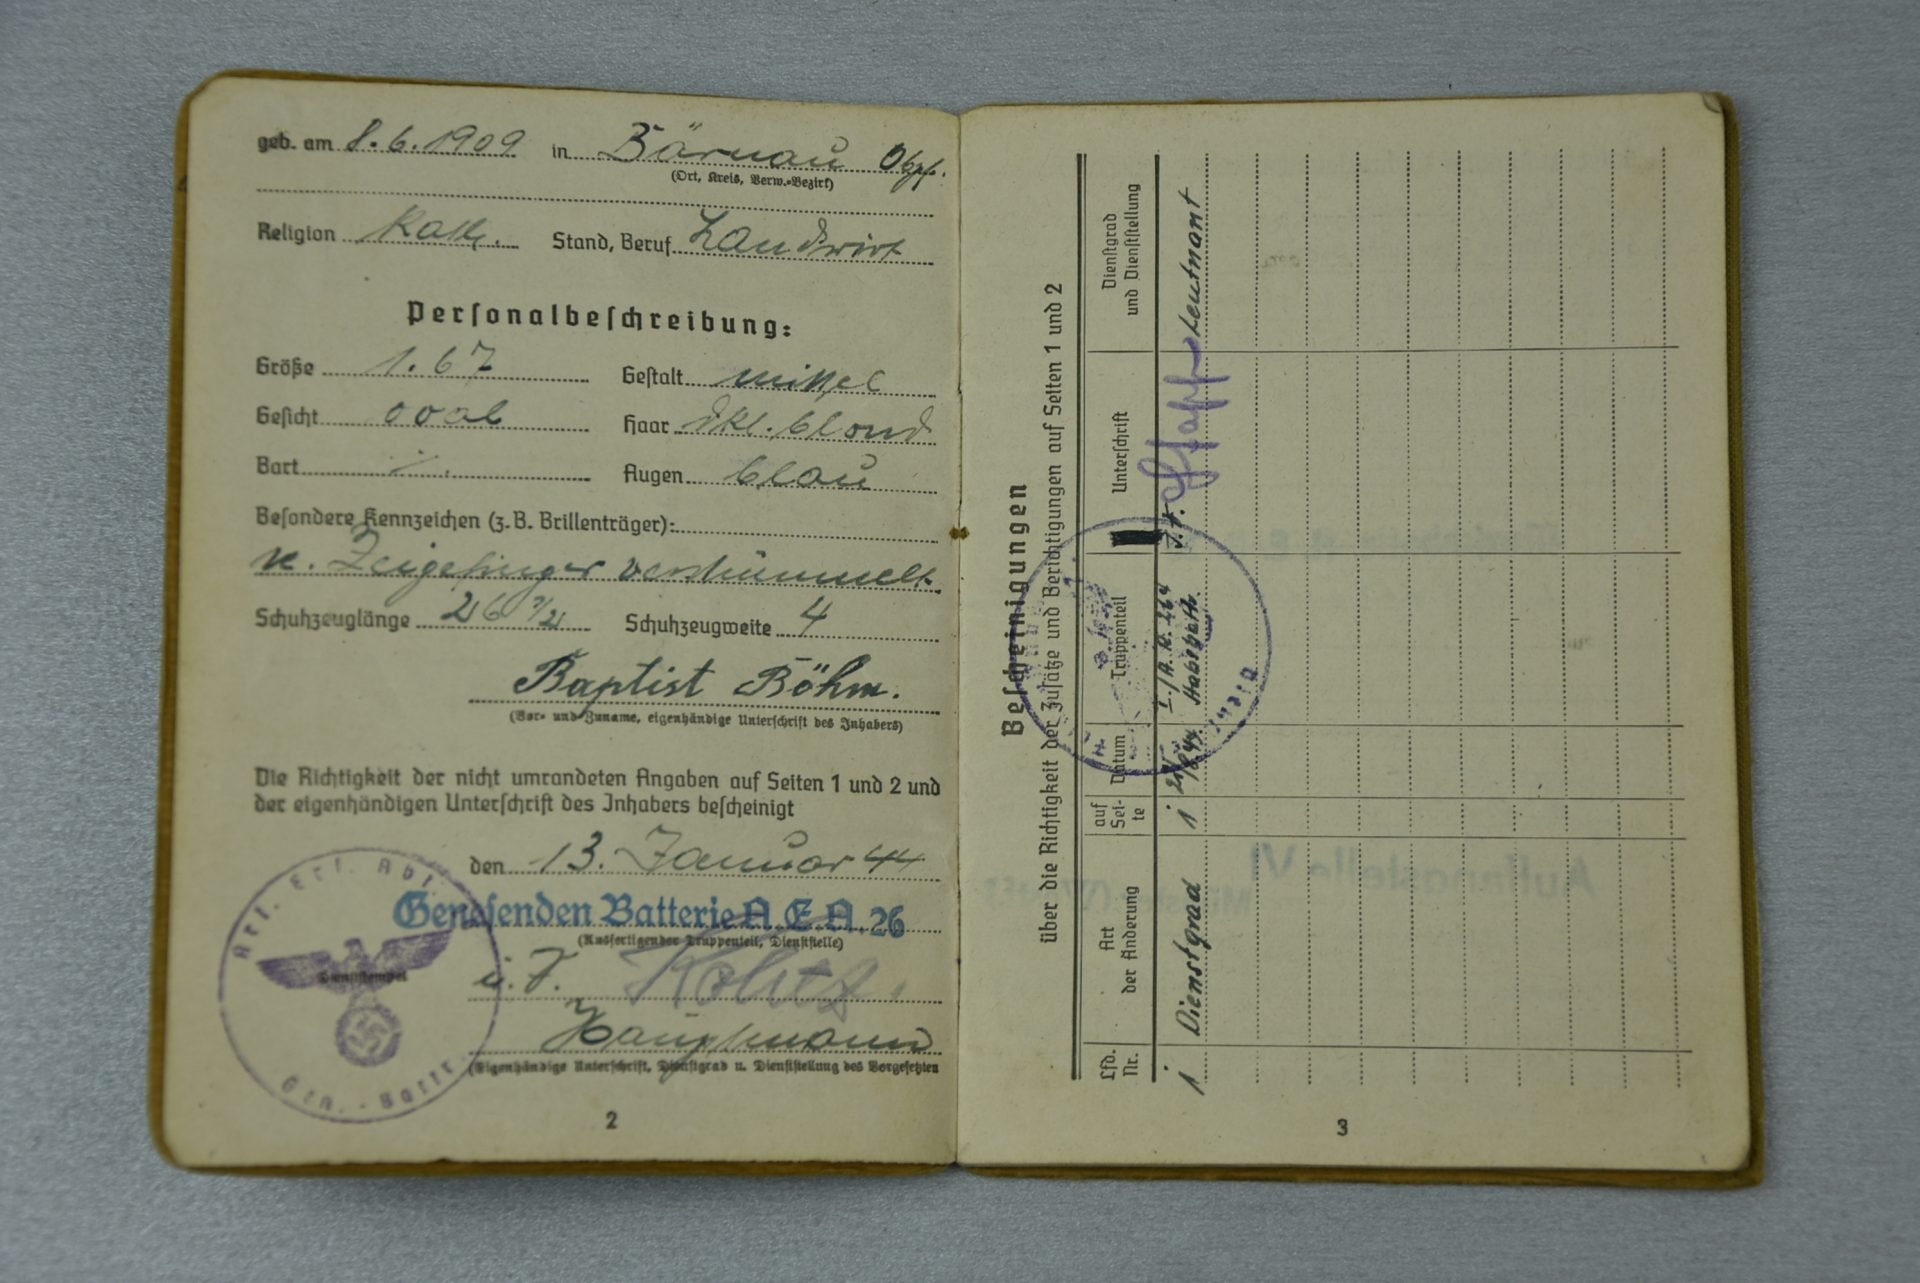 geb. am 8.6.1909 in Bärnau Obpf.
(Ort, Kreis, Verw.-Bezirk)
Religion Kath. Stand, Beruf Landwirt
Personalbeschreibung:
Größe 1.67 Gestalt mittel
Gesicht oval Haar dkl. blond
Bart ./. Augen blau
Besondere Kennzeichen (z. B. Brillenträger):
Zeigefinger verstümmelt
Schuhzeuglänge 26 1/2 Schuhzeugweite 4
Baptist Böhm.
(Vor- und Zuname, eigenhändige Unterschrift des Inhabers)
Die Richtigkeit der nicht umrandeten Angaben auf Seiten 1 und 2 und
der eigenhändigen Unterschrift des Inhabers bescheinigt
den 13. Januar 44
Genesenden Batterie A.E.A. 26
(Ausfertigender Truppenteil, Dienststelle)
Art. Ers. Abt.
Dienststempel
Gen.-Battr.
Hauptmann
(Eigenhändige Unterschrift, Dienstgrad u. Dienststellung des Vorgesetzten
2
Bescheinigungen
über die Richtigkeit der Zusätze und Berichtigungen auf Seiten 1 und 2
Lfd. Nr. Art der Änderung auf Sei- te Datum Truppenteil Unterschrift Dienstgrad und Dienststellung
1 Dienstgrad 1 Leutnant
3